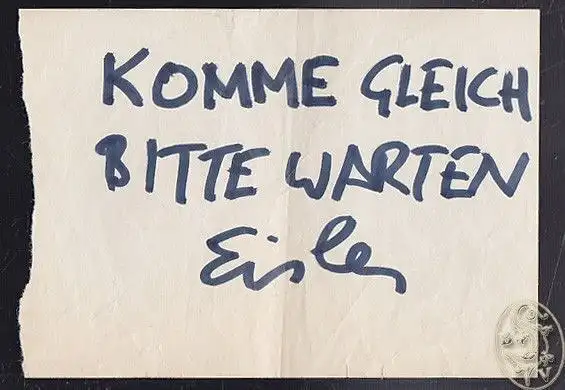 KOMME GLEICH
BITTE WARTEN
Eisler